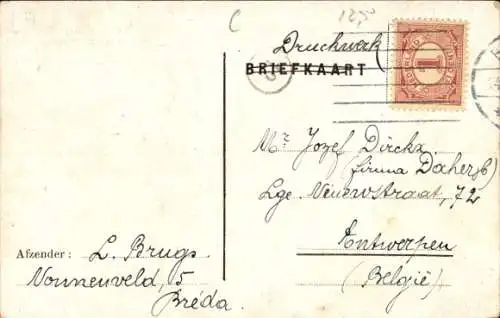 C
12,50
Druckwerk
BRIEFKAART
NEDERLAND
1
Mr Jozef Dirckx
(firma
Lge. Nieuwstraat, 72
Antwerpen
(België)
Afzender: L. Brugs.
Nonnenveld, 5
Bréda.